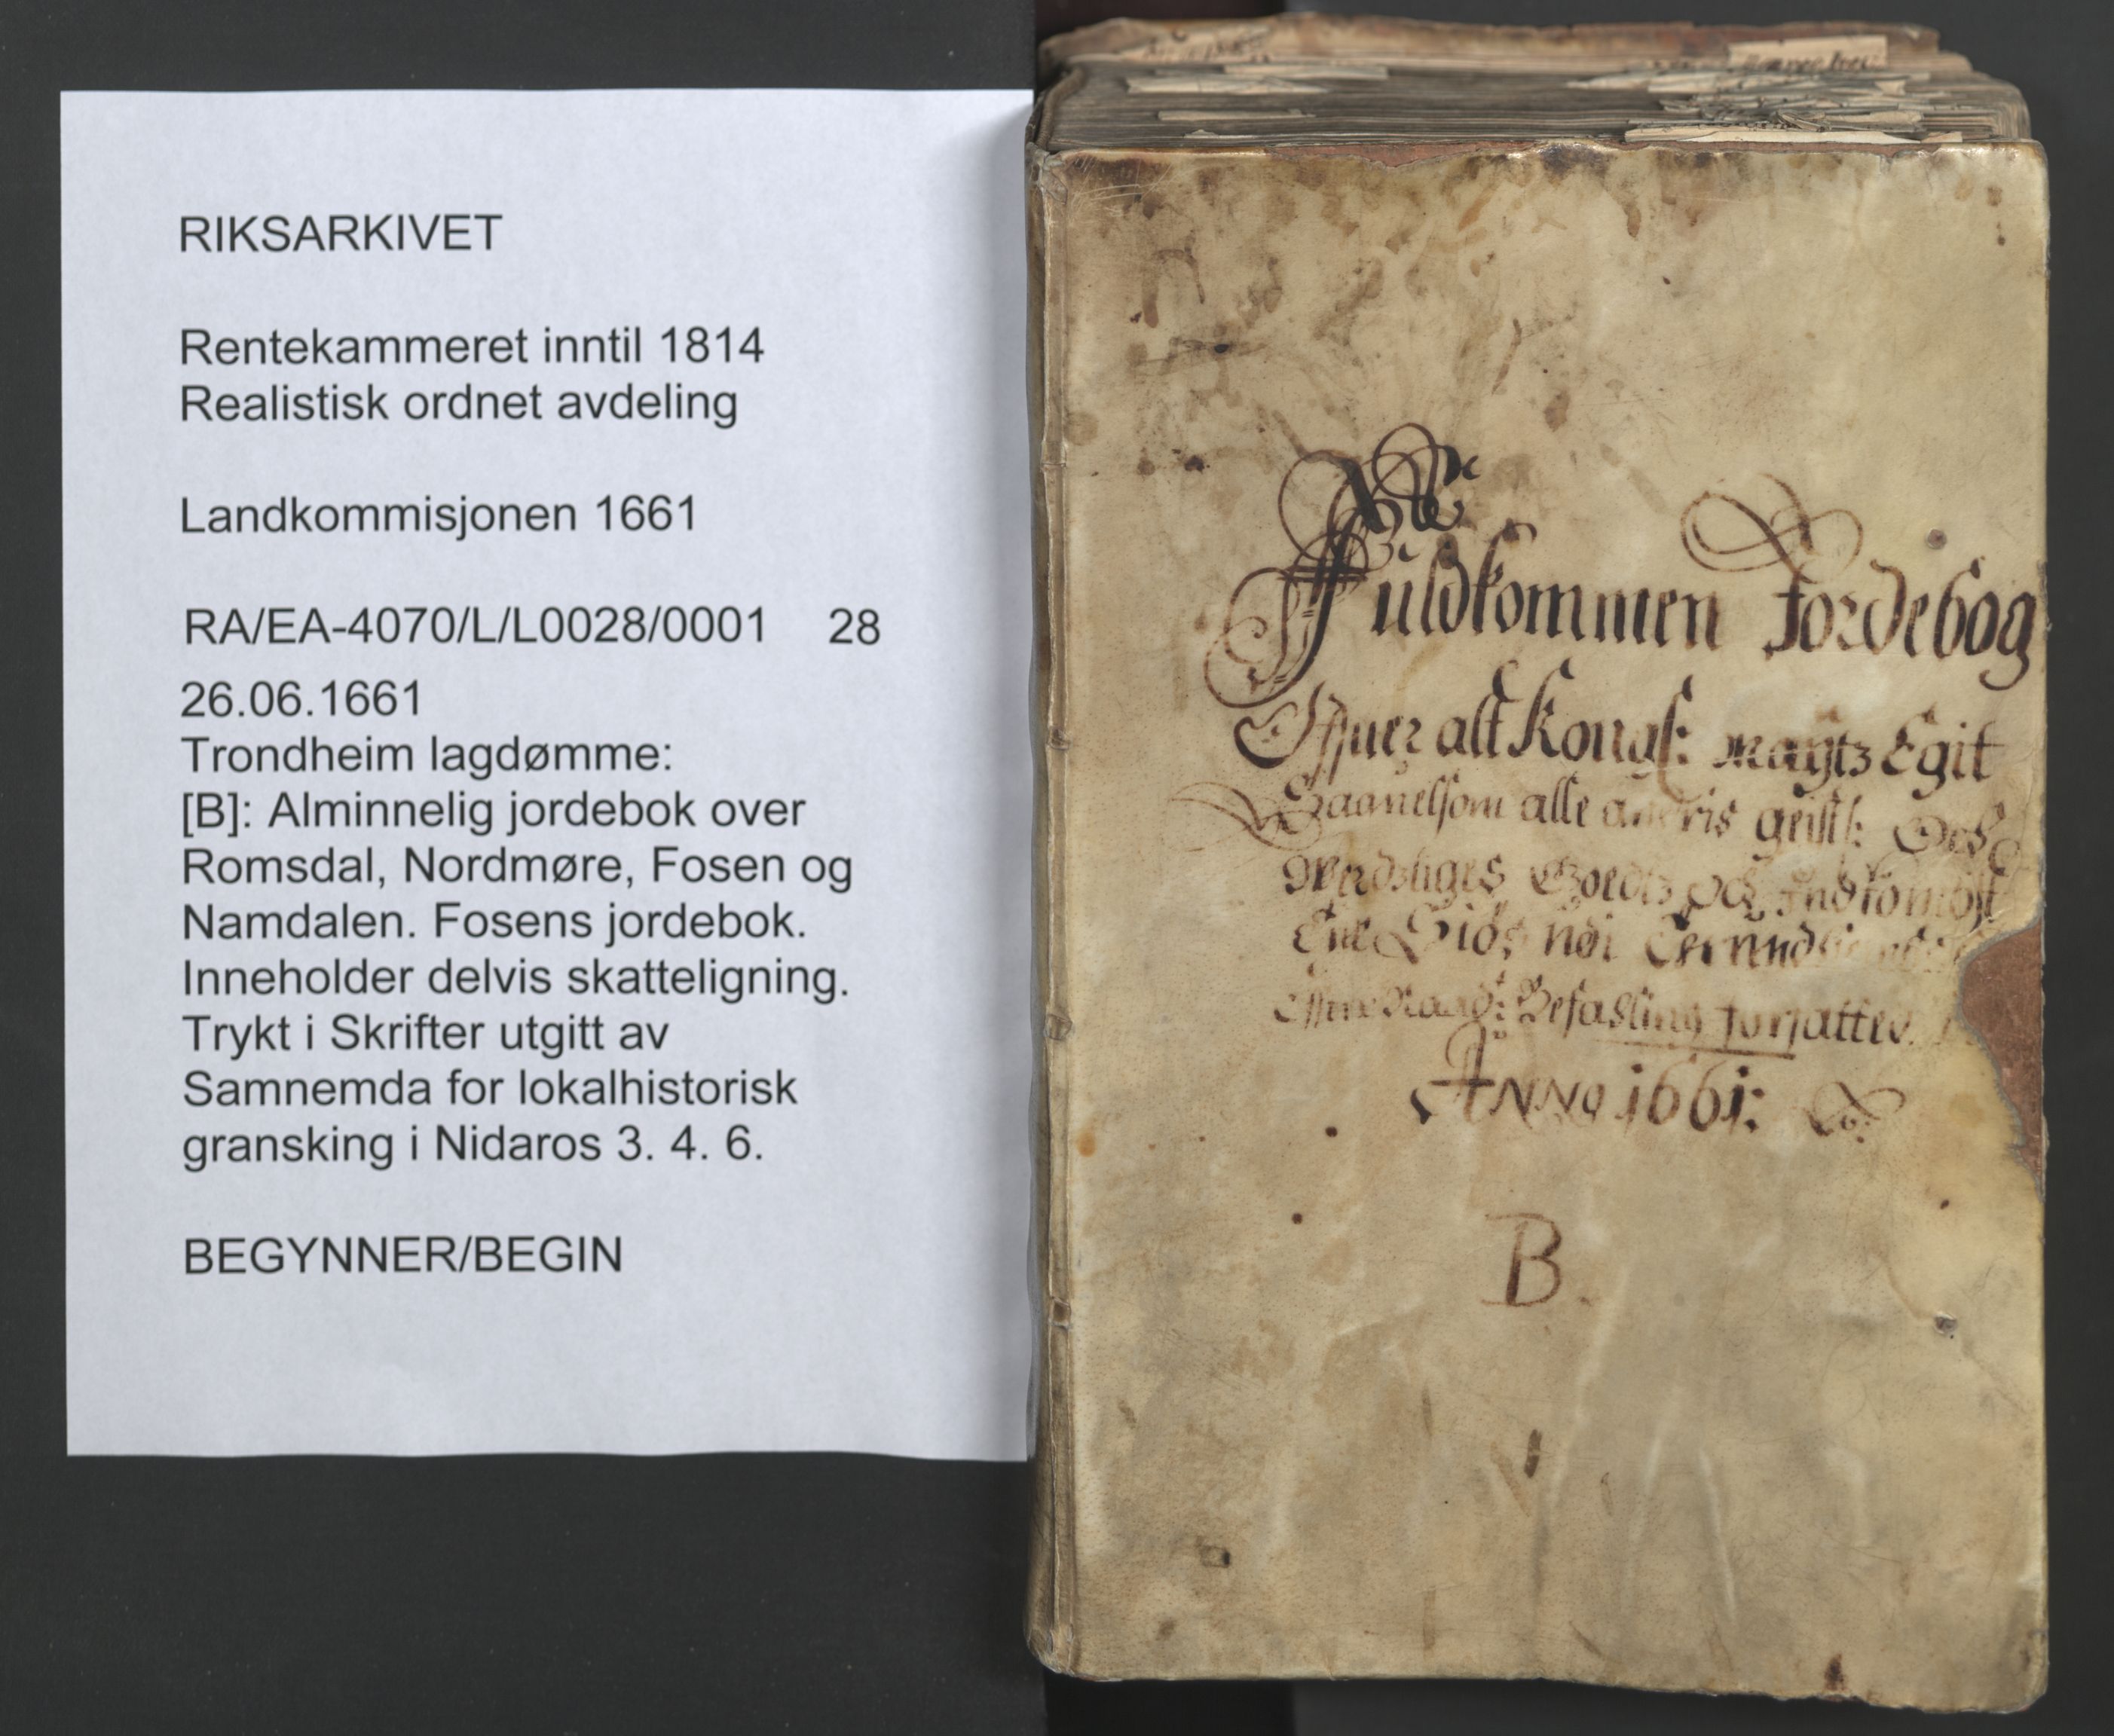 RIKSARKIVET
Rentekammeret inntil 1814
Realistisk ordnet avdeling
Landkommisjonen 1661
RA/EA-4070/L/L0028/0001 28
26.06.1661
Trondheim lagdømme:
[B]: Alminnelig jordebok over
Romsdal, Nordmøre, Fosen og
Namdalen. Fosens jordebok.
Inneholder delvis skatteligning.
Trykt i Skrifter utgitt av
Samnemda for lokalhistorisk
gransking i Nidaros 3. 4. 6.
BEGYNNER/BEGIN
Fuldkommen Jordebog
Offuer alt Kongl: Maytz Egit
Saauelsom alle andris geistl:
Werdzliges Goedtz og Indkombst
Befaeling forfatted.
ANNO 1661:
B.